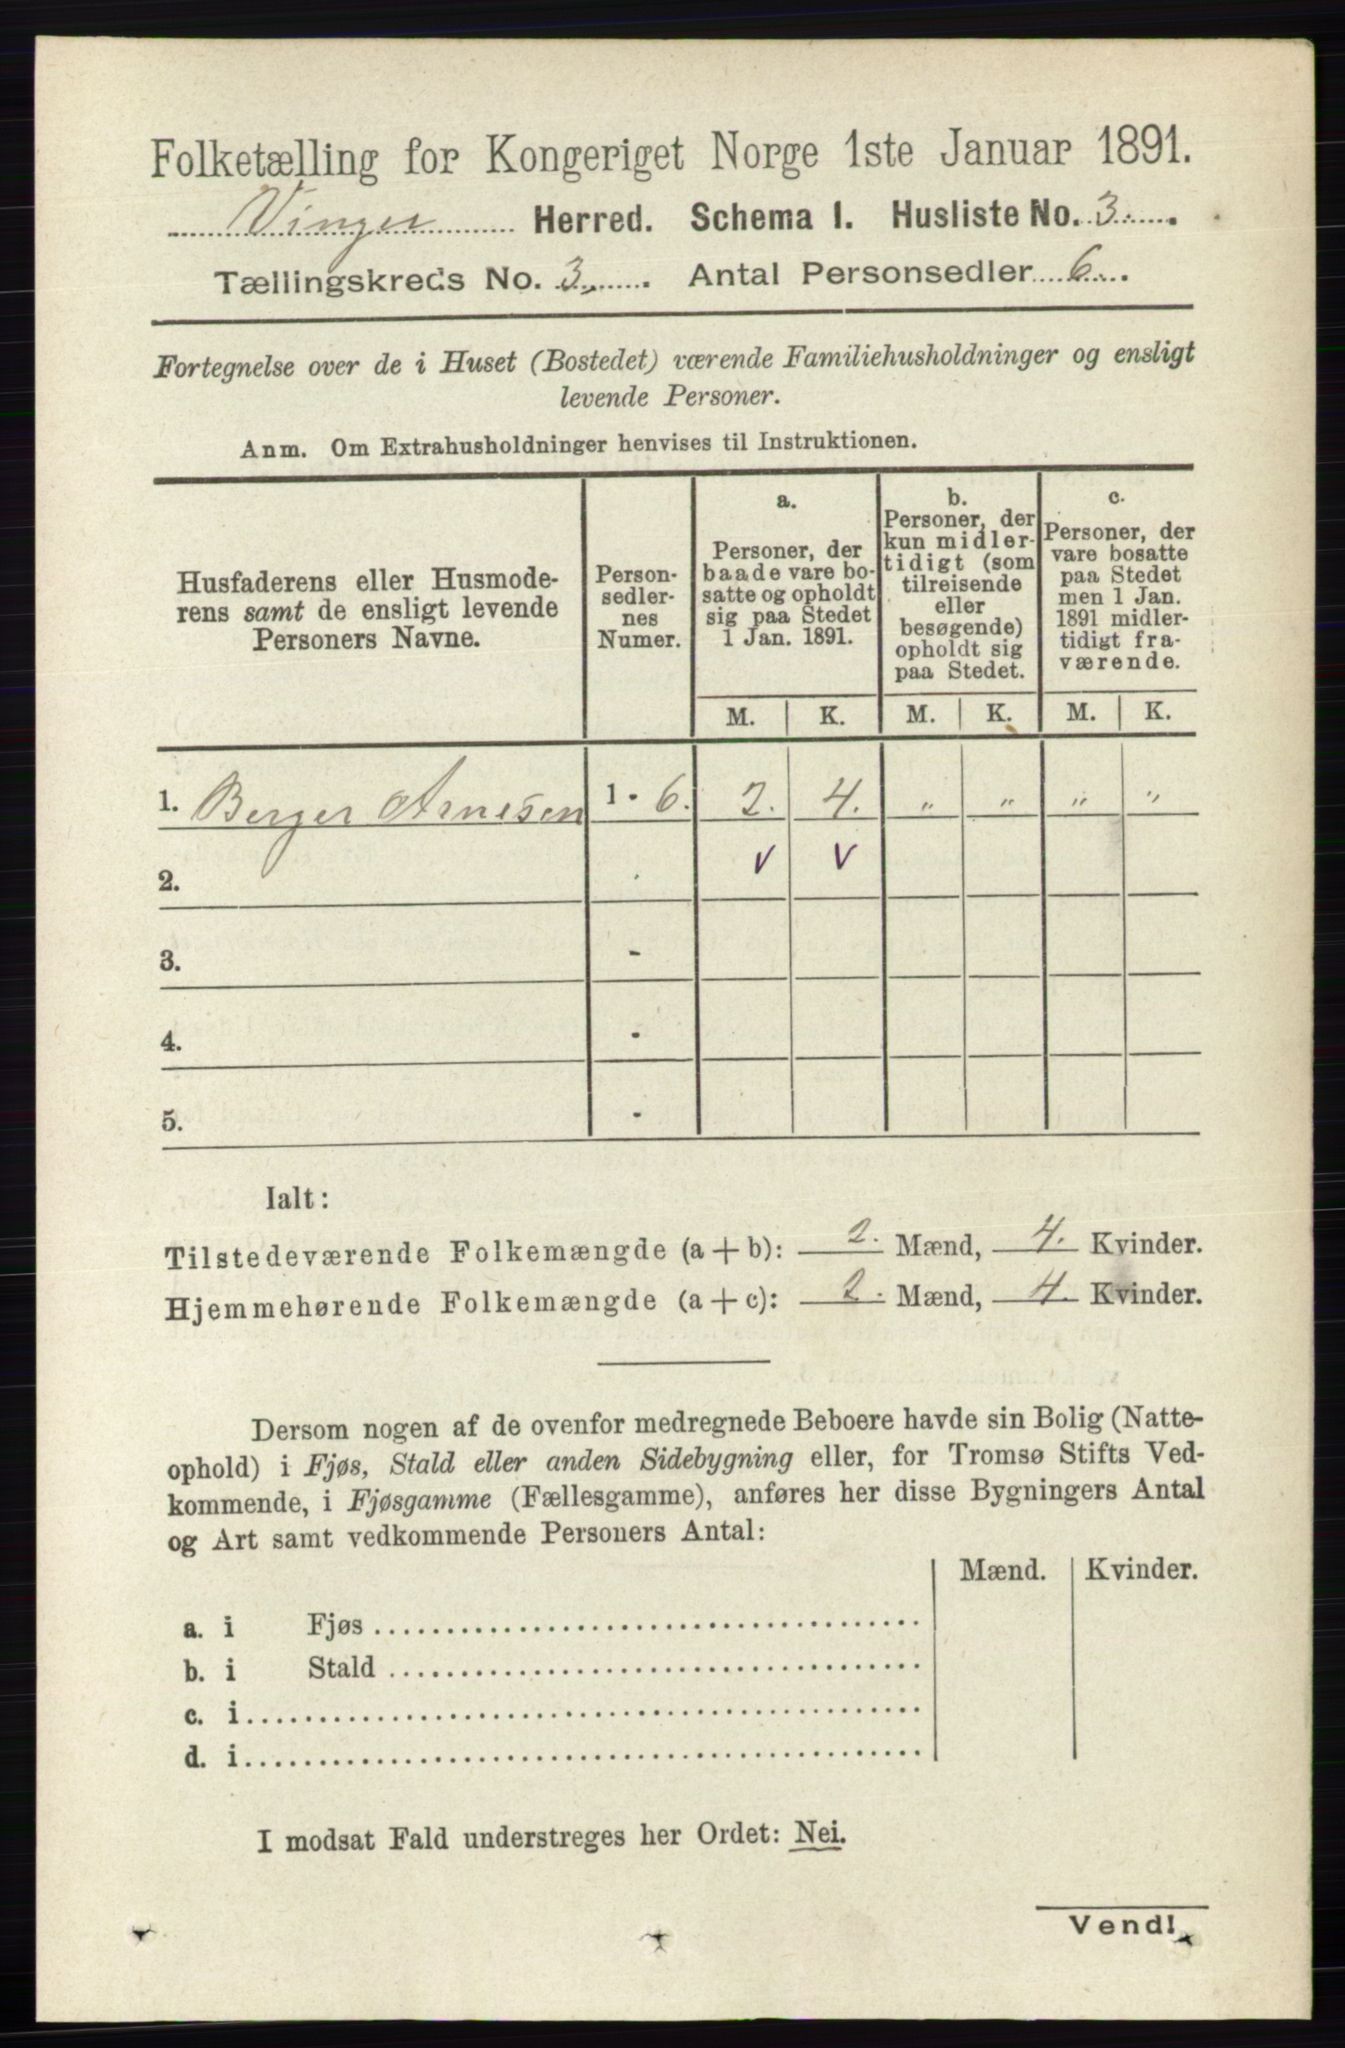 Folketælling for Kongeriget Norge 1ste Januar 1891.
Vinger Herred. Schema I. Husliste No. 3.
Tællingskreds No. 3. Antal Personsedler 6.
Fortegnelse over de i Huset (Bostedet) værende Familiehusholdninger og ensligt
levende Personer.
Anm. Om Extrahusholdninger henvises til Instruktionen.
Husfaderens eller Husmode-
rens samt de ensligt levende
Personers Navne.
Person-
sedler-
nes
Numer.
a.
Personer, der
baade vare bo-
satte og opholdt
sig paa Stedet
1 Jan. 1891.
b.
Personer, der
kun midler-
tidigt (som
tilreisende
eller
besøgende)
opholdt sig
paa Stedet.
c.
Personer, der
vare bosatte
paa Stedet
men 1 Jan.
1891 midler-
tidigt fra-
værende.
M. K. M. K. M. K.
1. Berger Arnesen 1 - 6. 2. 4. " " " "
2. v v
3. -
4. -
5. -
Ialt:
Tilstedeværende Folkemængde (a + b): 2. Mænd, 4. Kvinder.
Hjemmehørende Folkemængde (a + c): 2. Mænd, 4. Kvinder.
Dersom nogen af de ovenfor medregnede Beboere havde sin Bolig (Natte-
ophold) i Fjøs, Stald eller anden Sidebygning eller, for Tromsø Stifts Ved-
kommende, i Fjøsgamme (Fællesgamme), anføres her disse Bygningers Antal
og Art samt vedkommende Personers Antal:
Mænd. Kvinder.
a. i Fjøs
b. i Stald
c. i
d. i
I modsat Fald understreges her Ordet: Nei.
Vend!